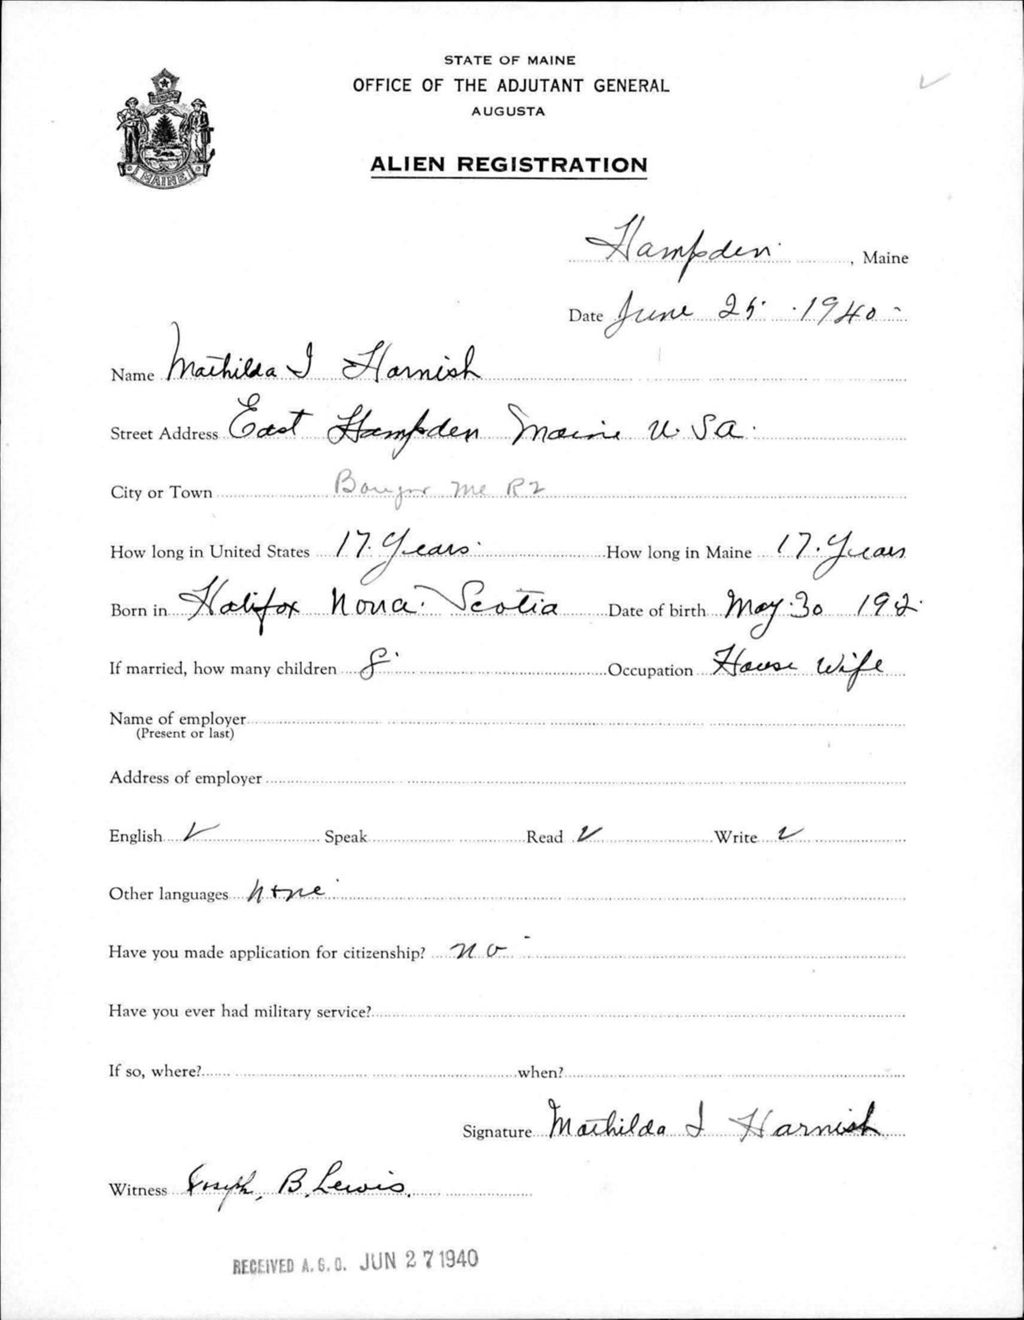 STATE OF MAINE
OFFICE OF THE ADJUTANT GENERAL
AUGUSTA
ALIEN REGISTRATION
MAINE
Hampden, Maine
Date June 25 1940
Name Mathilda I Harnish
Street Address East Hampden Maine U.S.A.
City or Town Bangor Me R2
How long in United States 17 Years How long in Maine 17 Years
Born in Halifax Nova Scotia Date of birth May 30 192
If married, how many children 8 Occupation House Wife
Name of employer
(Present or last)
Address of employer
English ✓ Speak Read ✓ Write ✓
Other languages None
Have you made application for citizenship? no
Have you ever had military service?
If so, where? when?
Signature Mathilda I Harnish
Witness Joseph, B. Lewis.
RECEIVED A.G.O. JUN 27 1940